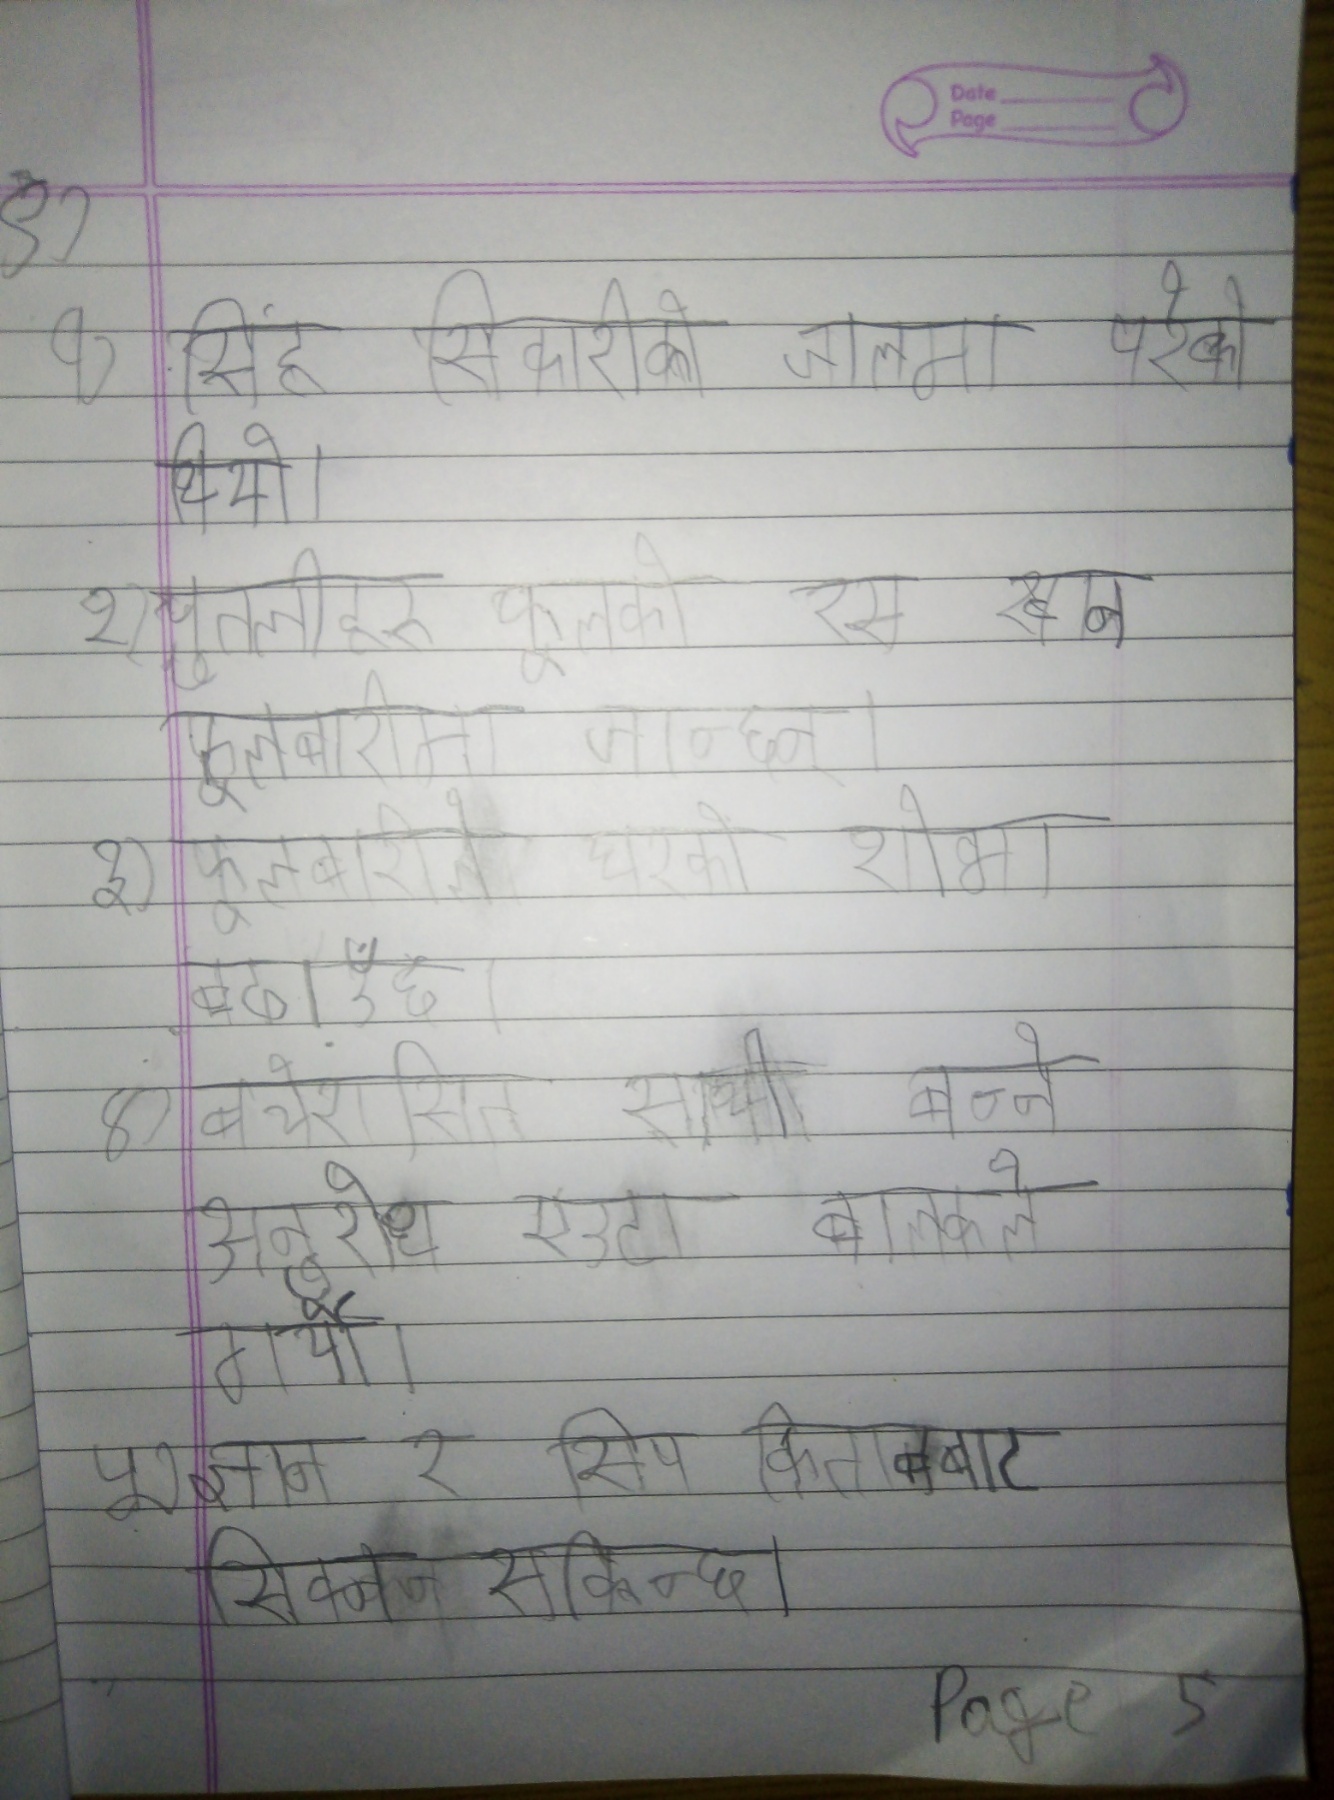 Date
Page
ङ)
१) सिंह सिकारीको जालमा परेको
थियो।
२) पुतलीहरु फूलको रस खान
फूलबारीमा जान्छन्।
३) फूलबारीले घरको शोभा
बढाउँछ।
४) बचेरासित साथी बन्ने
अनुरोध एउटा बालकले
गर्यो।
५) ज्ञान र सिप किताबबाट
सिक्न सकिन्छ।
Page 5